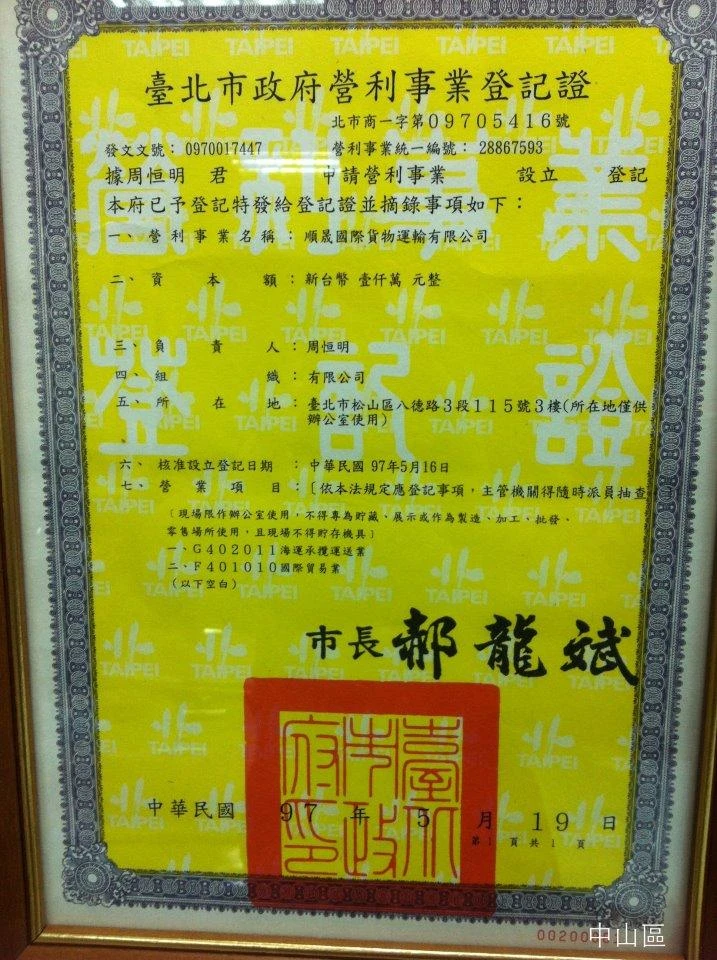 臺北市政府營利事業登記證
北市商一字第09705416號
發文文號：0970017447 營利事業統一編號：28867593
據周恒明 君 申請營利事業 設立 登記
本府已予登記特發給登記證並摘錄事項如下：
一、營利事業名稱：順晟國際貨物運輸有限公司
二、資本額：新台幣 壹仟萬 元整
三、負責人：周恒明
四、組織：有限公司
五、所在地：臺北市松山區八德路3段115號3樓(所在地僅供
辦公室使用)
六、核准設立登記日期：中華民國 97年5月16日
七、營業項目：〔依本法規定應登記事項，主管機關得隨時派員抽查
〔現場限作辦公室使用，不得專為貯藏、展示或作為製造、加工、批發、
零售場所使用，且現場不得貯存機具〕
一、G402011海運承攬運送業
二、F401010國際貿易業
（以下空白）
市長 郝龍斌
臺北市政府印
中華民國 97 年 5 月 19 日
第 1 頁共 1 頁
營利事業
登記證
TAIPEI
中山區